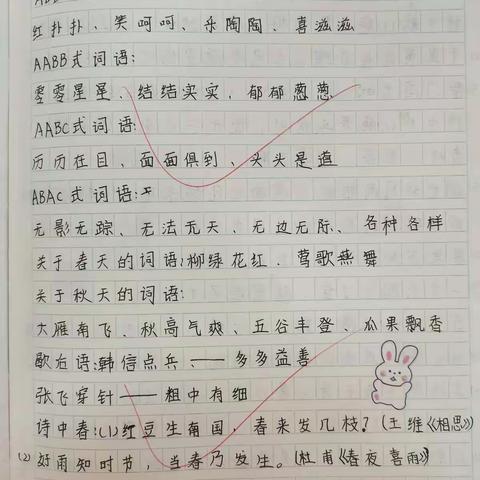 红扑扑、笑呵呵、乐陶陶、喜滋滋
AABB式词语:
零零星星、结结实实、郁郁葱葱
AABC式词语:
历历在目、面面俱到、头头是道
ABAC式词语:
无影无踪、无法无天、无边无际、各种各样
关于春天的词语:柳绿花红、莺歌燕舞
关于秋天的词语:
大雁南飞、秋高气爽、五谷丰登、瓜果飘香
歇后语:韩信点兵、——多多益善
张飞穿针——粗中有细
诗中春:(1)红豆生南国,春来发几枝?(王维《相思》)
(2)好雨知时节,当春乃发生。(杜甫《春夜喜雨》)